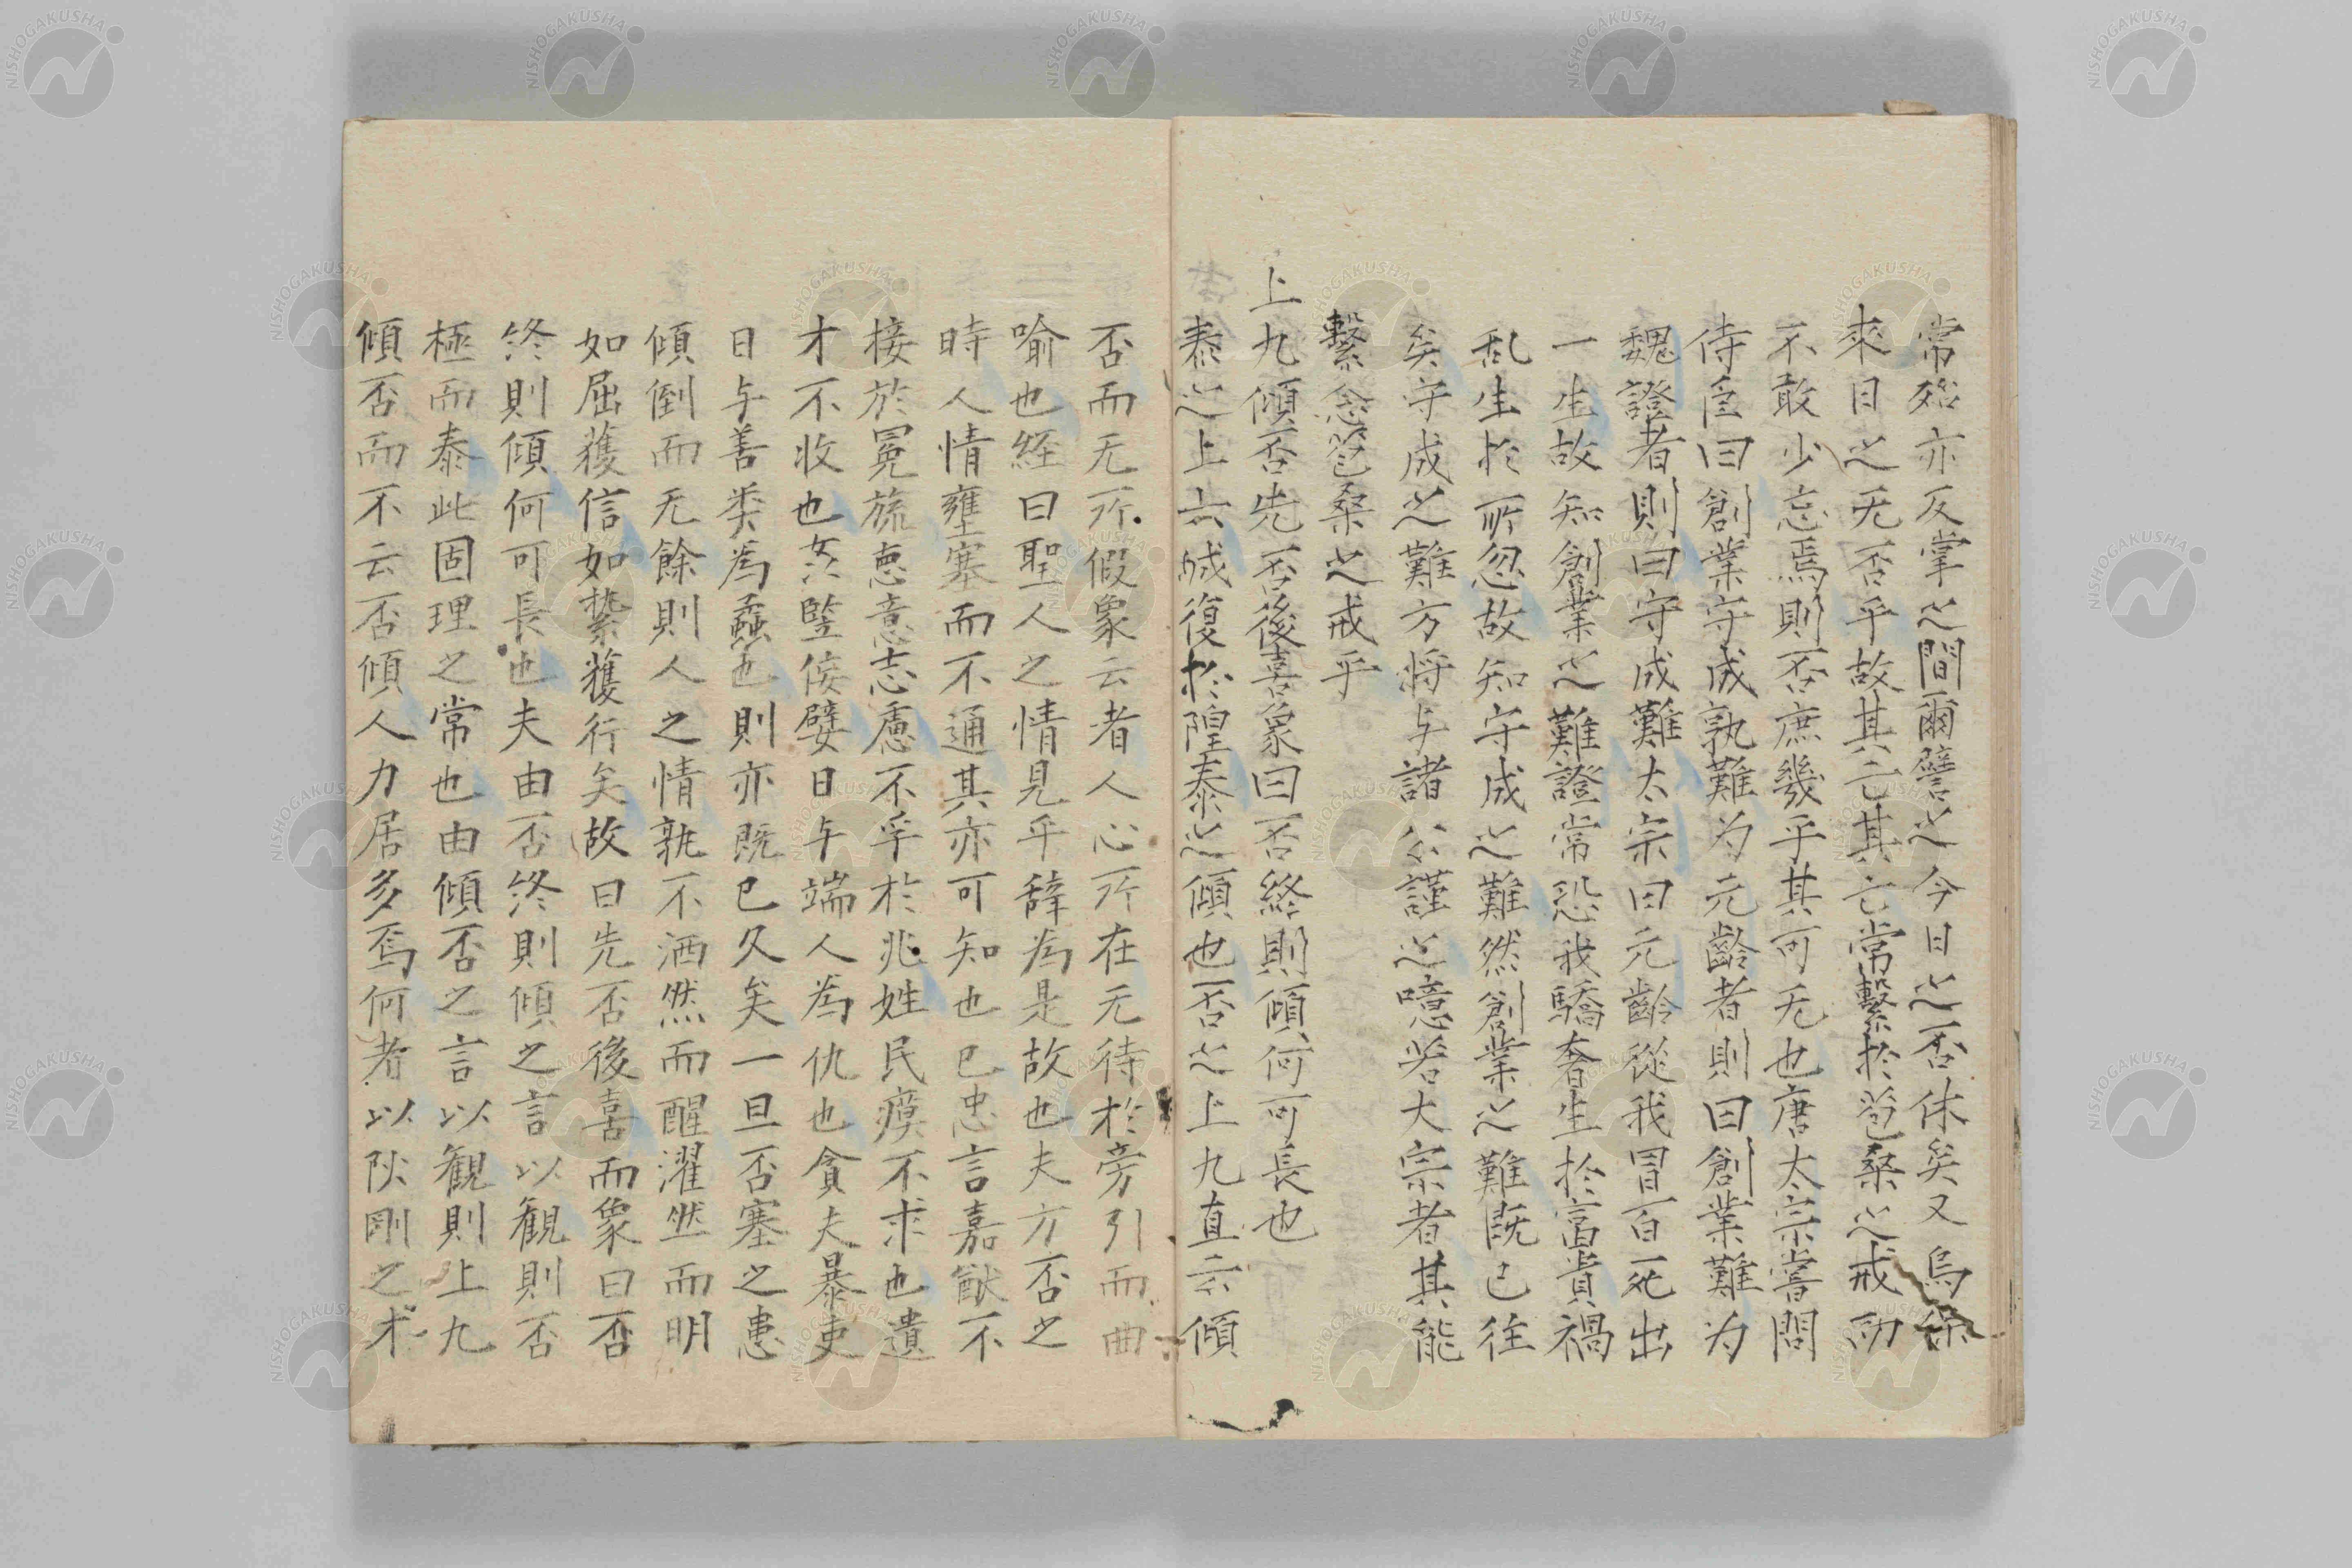 常殆亦反掌之間爾譬之今日之否休矣又烏保
來日之无否乎故其亡其亡常繫於苞桑之戒而
不敢少忘焉則否庶幾乎其可无也唐太宗嘗問
侍臣曰創業守成孰難为元齡者則曰創業難为
魏證者則曰守成難太宗曰元齡從我冒百死出
一生故知創業之難證常恐我驕奢生於富貴禍
乱生於所忽故知守成之難然創業之難既已往
矣守成之難方将与諸公謹之噫若大宗者其能
繫念苞桑之戒乎
上九傾否先否後喜象曰否終則傾何可長也
泰之上六城復於隍泰之傾也否之上九直云傾
否而无所假象云者人心所在无待於旁引而曲
喻也経曰聖人之情見乎辞為是故也夫方否之
時人情壅塞而不通其亦可知也已忠言嘉猷不
接於冕旒恵意志慮不孚於兆姓民瘼不求也遺
才不收也竖佞嬖日与端人為仇也貪夫暴吏
日与善类為蟊也則亦既已久矣一旦否塞之患
傾倒而无餘則人之情孰不洒然而醒濯然而明
如屈獲信如縶獲行矣故曰先否後喜而象曰否
終則傾何可長也夫由否終則傾之言以観則否
極而泰此固理之常也由傾否之言以観則上九
傾否而不云否傾人力居多焉何者以陽剛之才